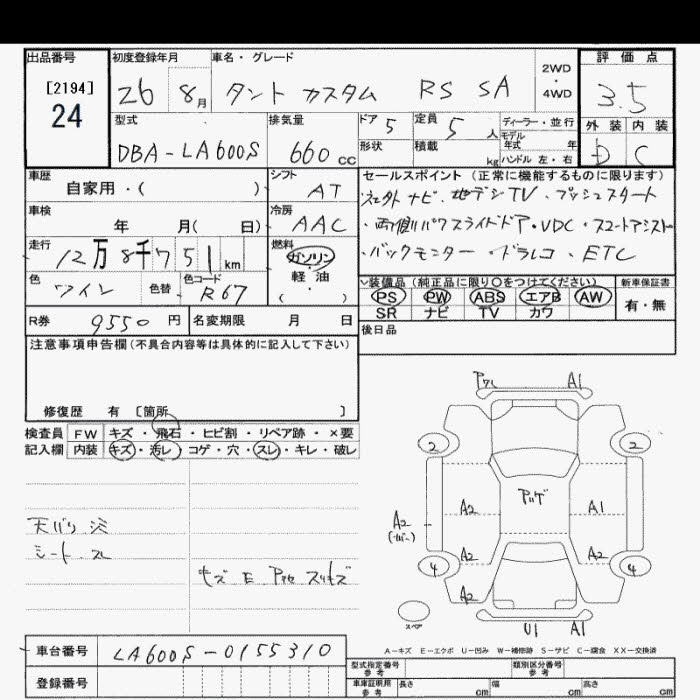 出品番号 初度登録年月 車名・グレード 評価点
[2194]
24
26 8月 タント カスタム RS SA 2WD・4WD 3.5
型式 排気量 ドア 5 定員 5人 ディーラー・並行 外装 内装
DBA-LA600S 660cc 形状 積載 kg モデル年式 年 ハンドル 左・右 D C
車歴 シフト セールスポイント(正常に機能するものに限ります)
自家用・( ) AT 社外ナビ・地デジTV・プッシュスタート
車検 冷房 ・両側パワスライドドア・VDC・スマートアシスト
年 月( 日) AAC ・バックモニター・ドラレコ・ETC
走行 燃料
12万8千751km ガソリン・軽・油・( )
色 色替 色コード 装備品(純正品に限り○をつけてください) 新車保証書
ワイン R67 PS PW ABS エアB AW 有・無
SR ナビ TV カワ
R券 9550円 名変期限 月 日 後日品
注意事項申告欄(不具合内容等は具体的に記入して下さい)
修復歴 有 [箇所 ]
検査員 FW キズ・飛石・ヒビ割・リペア跡・×要
記入欄 内装 キズ・汚レ・コゲ・穴・スレ・キレ・破レ
A1
2 2
A2 アリゲ A1
A2
A2 A2
4 4
A2
天バリ
シート スレ
キズ E スリキズ
スペア U1 A1
A-キズ E-エクボ U-凹み W-補修跡 S-サビ C-腐食 XX-交換済
車台番号 LA600S-0155310
登録番号
型式指定番号 参考 類別区分番号 参考
車庫証明用 参考 長さ cm 幅 cm 高さ cm